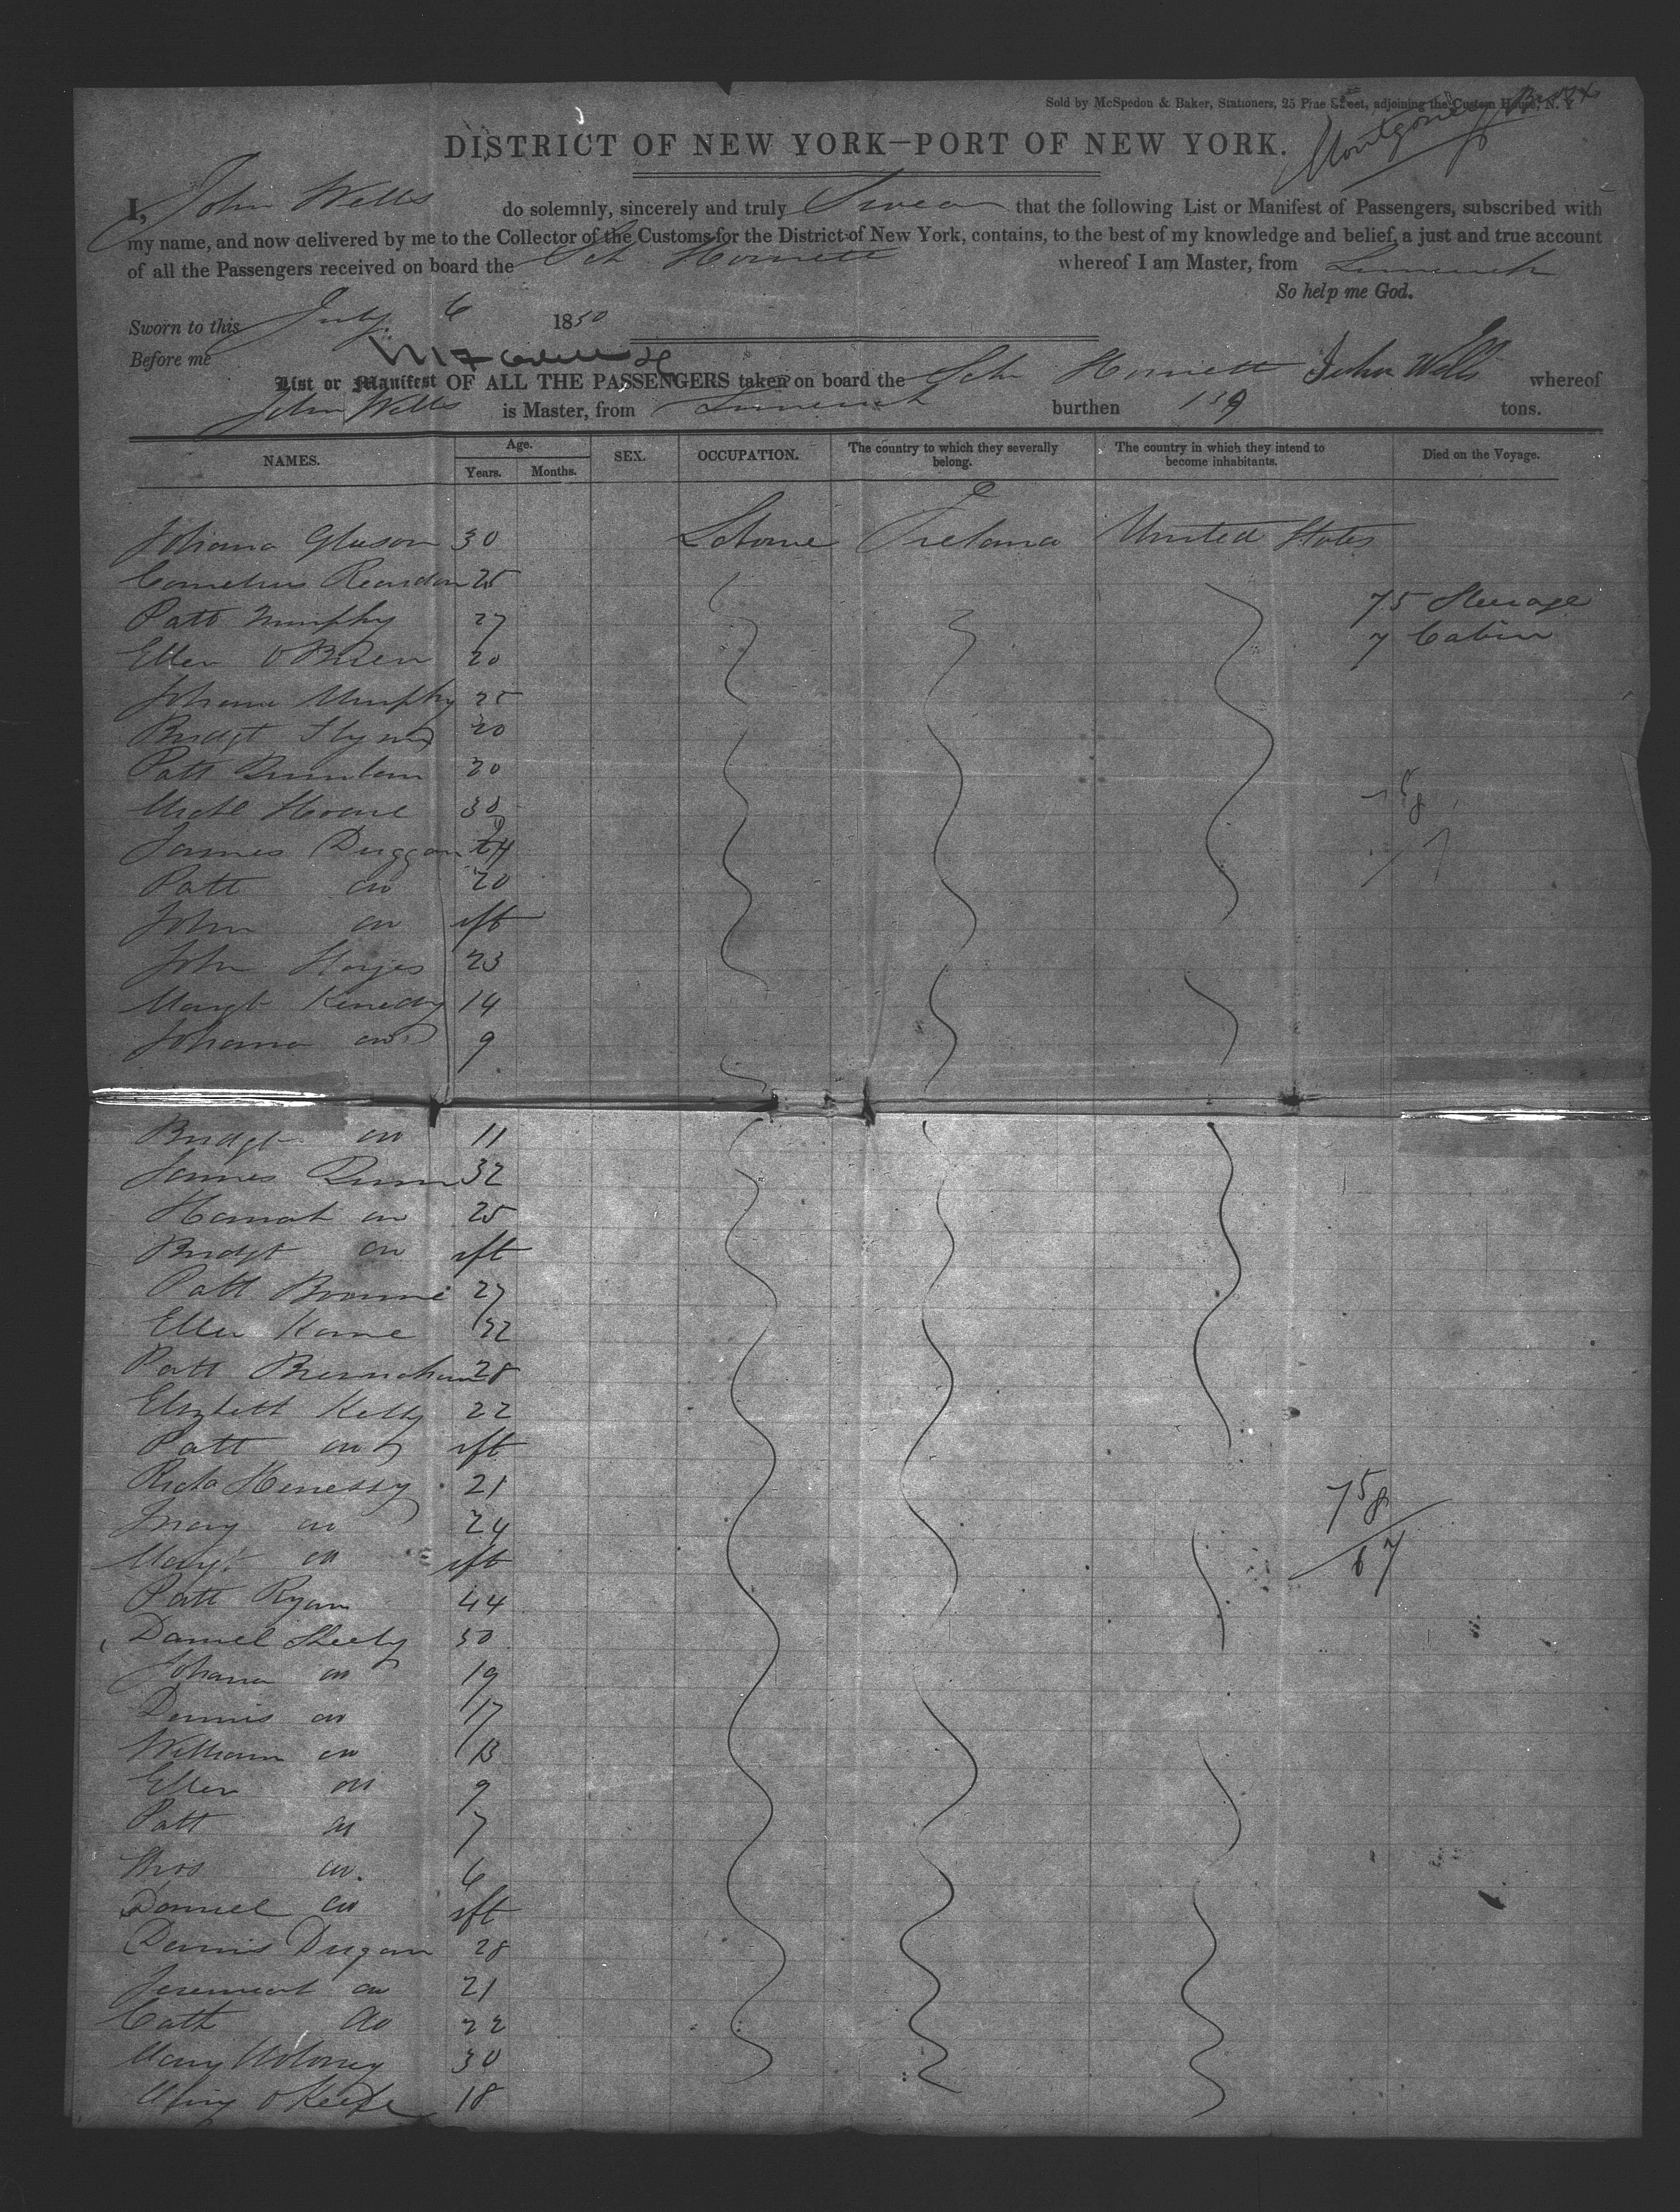 Sold by McSpedon & Baker, Stationers, 25 Pine Street, adjoining the Custom House, N. Y.
Montgomery
DISTRICT OF NEW YORK—PORT OF NEW YORK.
I, John Wells do solemnly, sincerely and truly Swear that the following List or Manifest of Passengers, subscribed with
my name, and now delivered by me to the Collector of the Customs for the District of New York, contains, to the best of my knowledge and belief, a just and true account
of all the Passengers received on board the Sch Hornett whereof I am Master, from Limerick
So help me God.
Sworn to this July 6 1850
Before me
List or Manifest OF ALL THE PASSENGERS taken on board the Sch Hornett John Wells whereof
John Wells is Master, from Limerick burthen 159 tons.
NAMES. Age. Years. Months. SEX. OCCUPATION. The country to which they severally belong. The country in which they intend to become inhabitants. Died on the Voyage.
Johana Gleason 30 Ireland United States
Cornelius Reardon 25
75 Steerage
Patt Murphy 27
7 Cabin
Ellen OBrien 20
Johana Murphy 25
Bridgt 20
Patt 30
Michl 30
James Duggan 24
Patt do 20
John do ift
John Hayes 23
Margt Kenedy 14
Johana do 9
Bridgt do 11
James Quinn 32
Hannah do 25
Bridgt do ift
Patt 27
Ellen 22
Patt 28
Elizbett Kelly 22
Patt do ift
Richd Henessy 21
758
Mary do 24
67
Margt do ift
Patt Ryan 44
Daniel Sheehy 50
Johana do 19
Dennis do 17
William do 13
Ellen do 9
Patt do 7
Thos do. 6
Daniel do ift
Dennis Dugan 28
Jeremiah do 21
Cath do 22
Mary Moloney 30
Mary OKeefe 18